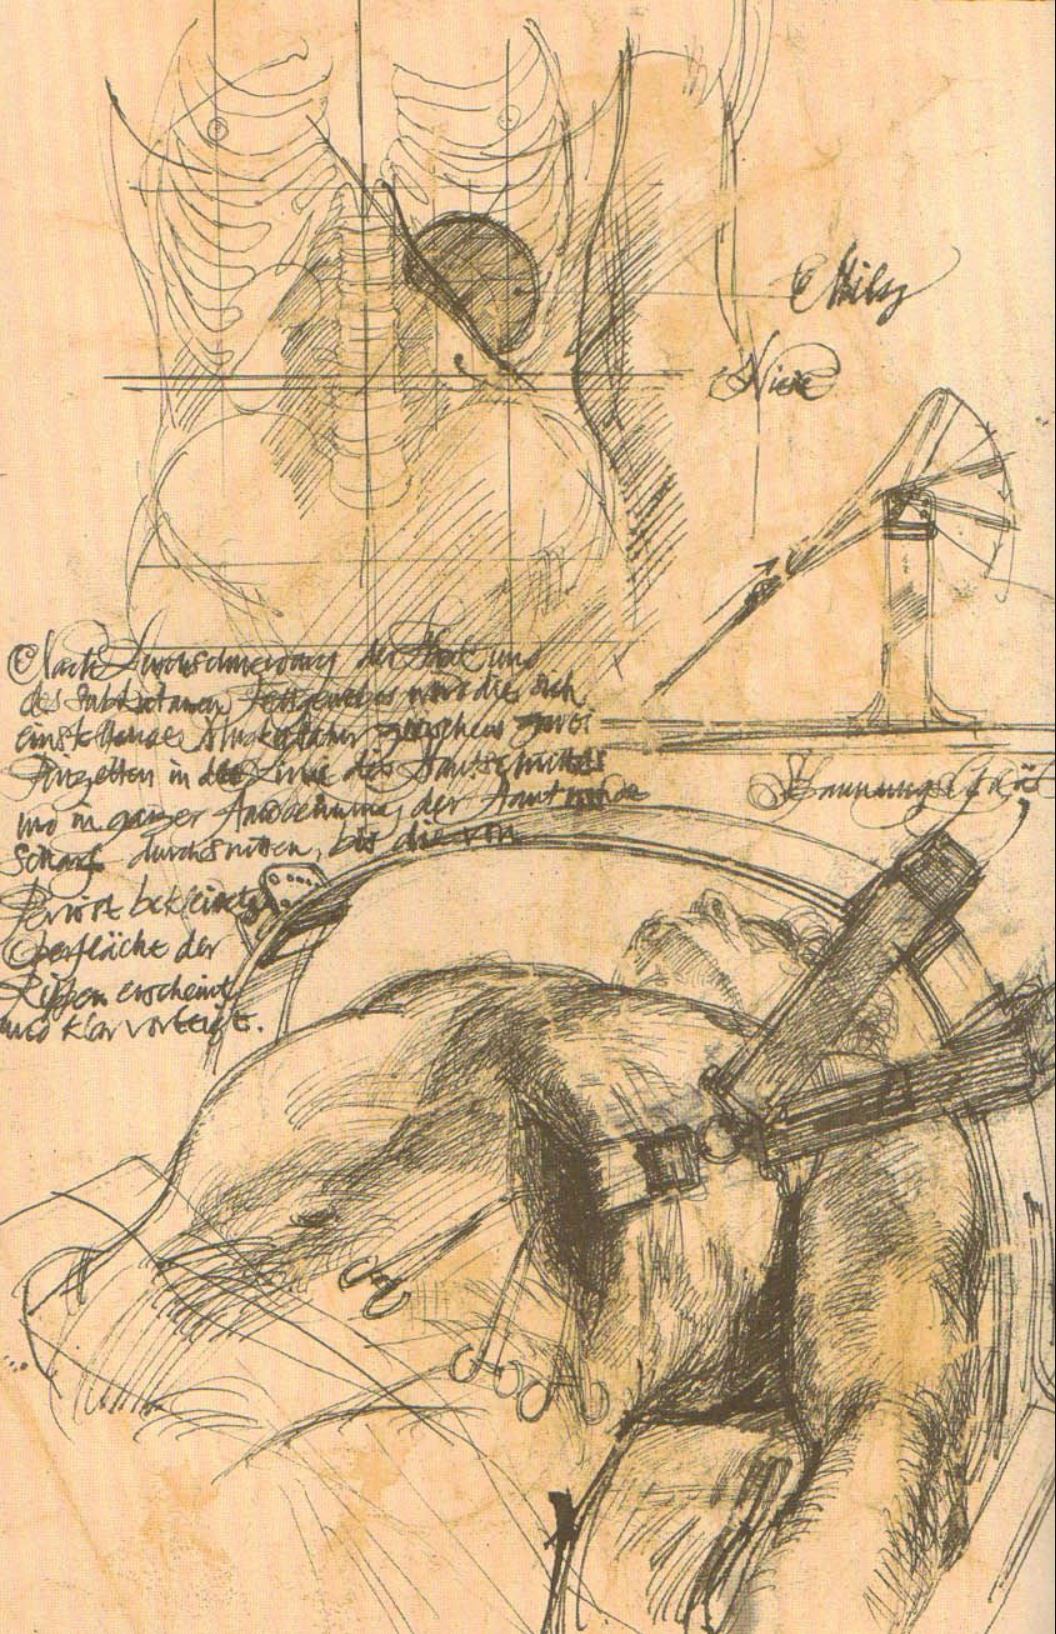 Milz
Niere
Nach Durchschneidung der Haut und
des subkutanen Fettgewebes wird die sich
einstellende Muskulatur zwischen zwei
Pinzetten in der Linie des Hautschnittes
und in ganzer Ausdehnung der Hautwunde
scharf durchschnitten, bis die von
Periost bekleidete
Oberfläche der
Rippen erscheint
und klar vorliegt.